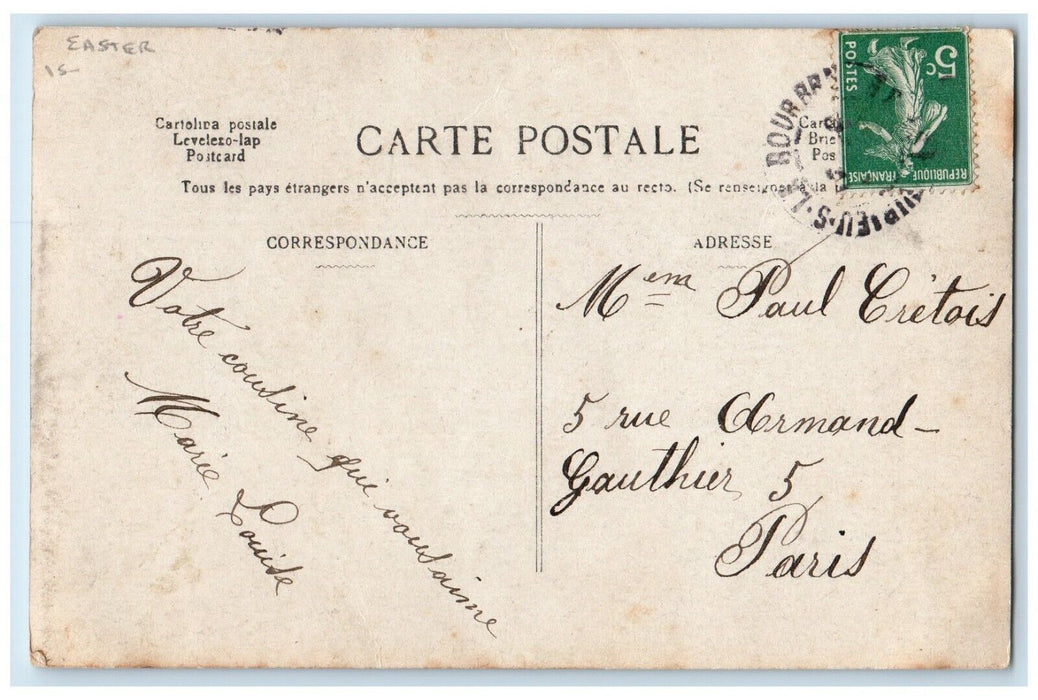 EASTER
15
Cartolina postale
Levelezo-lap
Postcard
CARTE POSTALE
Tous les pays étrangers n'acceptent pas la correspondance au recto. (Se renseigner à la
5c
POSTES
REPUBLIQUE FRANÇAISE
CORRESPONDANCE
Votre cousine qui vous aime
Marie Louise
ADRESSE
Mem Paul Crétois
5 rue Armand-
Gauthier 5
Paris